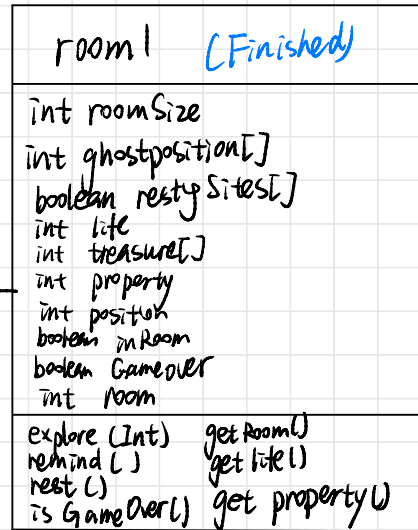 room1 (Finished)
int roomSize
int ghostposition[]
boolean restySites[]
int life
int treasure[]
int property
int position
boolean inRoom
boolean Gameover
int room
explore (Int) getRoom()
remind () getlife()
rest ()
is GameOver() get property()